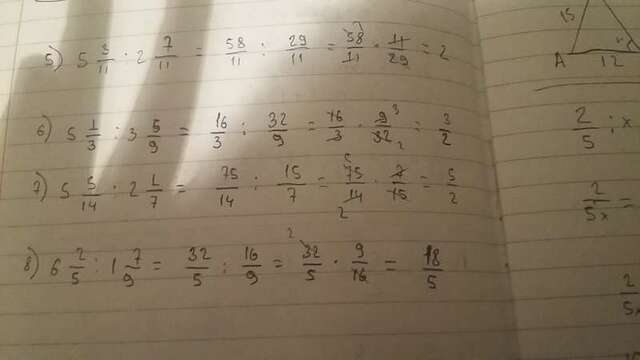 5) 5 3/11 : 2 7/11 = 58/11 : 29/11 = 58/11 · 11/29 = 2
6) 5 1/3 : 3 5/9 = 16/3 : 32/9 = 16/3 · 9/32 = 3/2
7) 5 5/14 : 2 1/7 = 75/14 : 15/7 = 75/14 · 7/15 = 5/2
8) 6 2/5 : 1 7/9 = 32/5 : 16/9 = 32/5 · 9/16 = 18/5
A 15
12
2/5 : x
2/5x =
2/5x